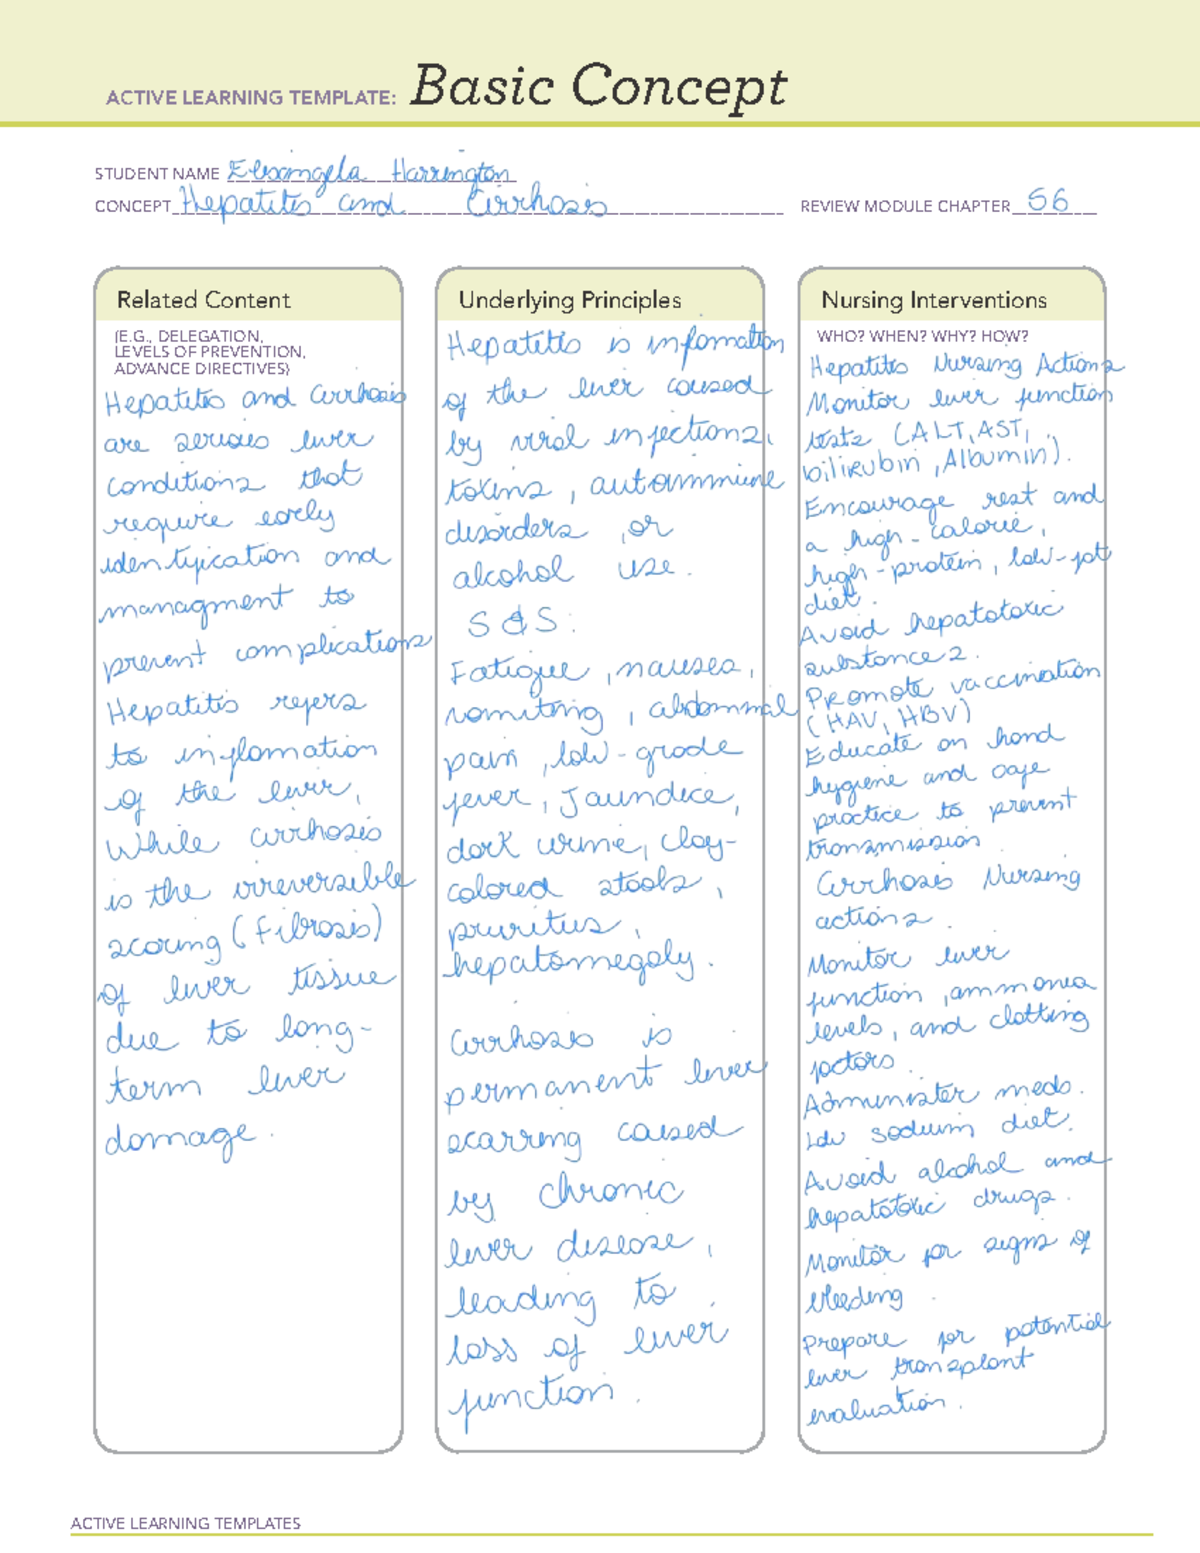 ACTIVE LEARNING TEMPLATE: Basic Concept
STUDENT NAME Elisangela Harrington
CONCEPT Hepatitis and Cirrhosis REVIEW MODULE CHAPTER 56
Related Content
(E.G., DELEGATION,
LEVELS OF PREVENTION,
ADVANCE DIRECTIVES)
Hepatitis and Cirrhosis
are serious liver
conditions that
require early
identification and
managment to
prevent complications
Hepatitis refers
to inflamation
of the liver,
While cirrhosis
is the irreversible
scaring (Fibrosis)
of liver tissue
due to long-
term liver
damage.
Underlying Principles
Hepatitis is infomation
of the liver caused
by viral infections,
toxins, autoimmune
disorders, or
alcohol use.
S & S:
Fatigue, nausea,
vomiting, abdominal
pain, low-grade
fever, Jaundice,
dark urine, clay-
colored stools,
pruritus,
hepatomegaly.
Cirrhosis is
permanent liver
scarring caused
by chronic
liver disease,
leading to
loss of liver
function.
Nursing Interventions
WHO? WHEN? WHY? HOW?
Hepatitis Nursing Actions
Monitor liver function
tests (ALT, AST,
bilirubin, Albumin).
Encourage rest and
a high-calorie,
high-protein, low-fat
diet.
Avoid hepatotoxic
substances.
Promote vaccination
(HAV, HBV)
Educate on hand
hygiene and safe
practice to prevent
transmission
Cirrhosis Nursing
actions.
Monitor liver
function, ammonia
levels, and clotting
factors.
Administer meds.
Low sodium diet.
Avoid alcohol and
hepatotoxic drugs.
Monitor for signs of
bleeding.
Prepare for potential
liver transplant
evaluation.
ACTIVE LEARNING TEMPLATES